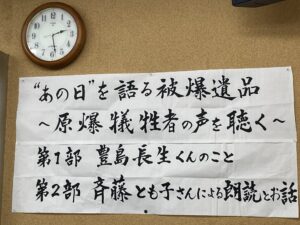 “あの日”を語る被爆遺品
～原爆犠牲者の声を聴く～
第1部 豊島長生くんのこと
第2部 斉藤とも子さんによる朗読とお話